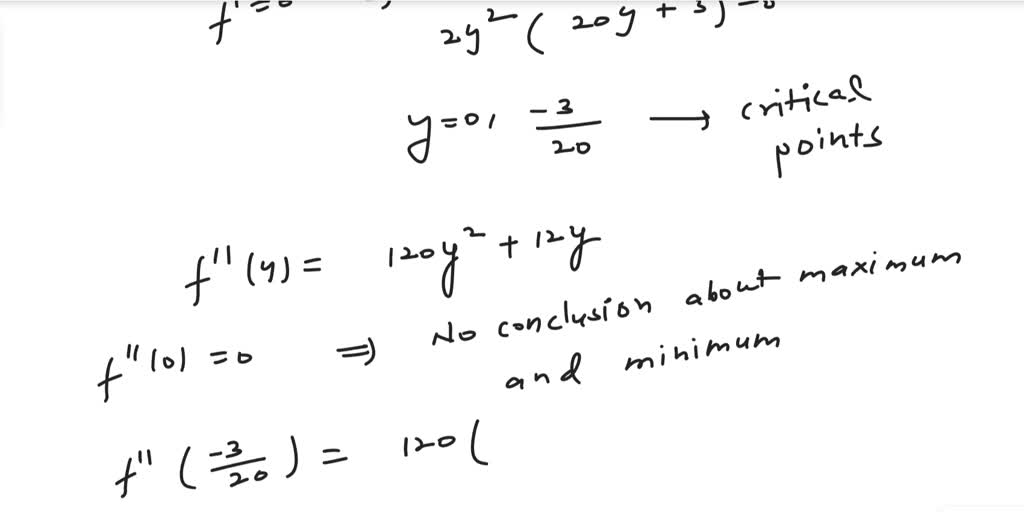 f'=0
2y² ( 20y + 3) = 0
y=0, -3/20 → critical points
f''(y) = 120y² + 12y
f''(0) = 0 ⇒ No conclusion about maximum and minimum
f'' (-3/20) = 120 (